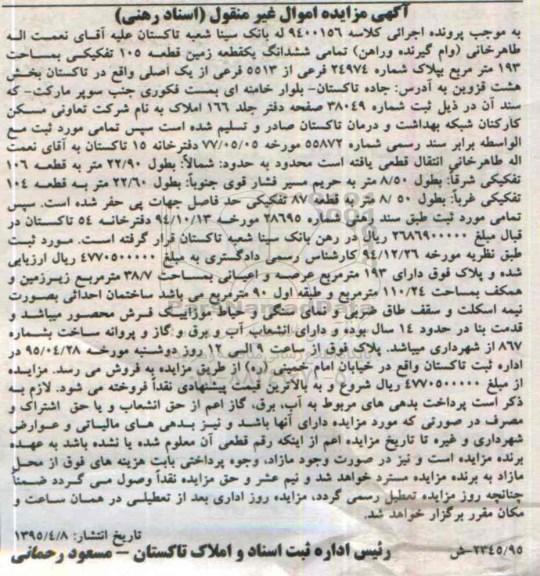 آگهی مزایده اموال غیر منقول (اسناد رهنی)
به موجب پرونده اجرائی کلاسه ۹۴۰۰۱۵۶ له بانک سینا شعبه تاکستان علیه آقای نعمت اله
طاهرخانی (وام گیرنده وراهن) تمامی ششدانگ یکقطعه زمین قطعه ۱۰۵ تفکیکی بمساحت
۱۹۳ متر مربع بپلاک شماره ۲۴۹۷۴ فرعی از ۵۵۱۳ فرعی از یک اصلی واقع در تاکستان بخش
هشت قزوین به آدرس: جاده تاکستان- بلوار خامنه ای بست فکوری جنب سوپر مارکت- که
سند آن در ذیل ثبت شماره ۳۸۰۴۹ صفحه دفتر جلد ۱۶۶ املاک به نام شرکت تعاونی مسکن
کارکنان شبکه بهداشت و درمان تاکستان صادر و تسلیم شده است سپس تمامی مورد ثبت مع
الواسطه برابر سند رسمی شماره ۵۵۸۷۲ مورخه ۷۷/۰۵/۰۵ دفترخانه ۱۵ تاکستان به آقای نعمت
اله طاهرخانی انتقال قطعی یافته است محدود به حدود: شمالاً: بطول ۲۲/۹۰ متر به قطعه ۱۰۶
تفکیکی شرقاً: بطول ۸/۵۰ متر به حریم مسیر فشار قوی جنوباً: بطول ۲۲/۶۰ متر به قطعه ۱۰۴
تفکیکی غرباً: بطول ۸/۵۰ متر به قطعه ۸۷ تفکیکی حد فاصل جهات پی حفر شده است. سپس
تمامی مورد ثبت طبق سند رهنی شماره ۲۸۶۹۵ مورخه ۹۴/۱۰/۱۳ دفترخانه ۵۴ تاکستان در
قبال مبلغ ۲۶۸۶۹۰۰۰۰۰ ریال در رهن بانک سینا شعبه تاکستان قرار گرفته است. مورد ثبت
طبق نظریه مورخه ۹۴/۱۲/۲۶ کارشناس رسمی دادگستری به مبلغ ۴۷۷۰۵۰۰۰۰۰ ریال ارزیابی
شده و پلاک فوق دارای ۱۹۳ مترمربع عرصه و اعیانی بمساحت ۳۸/۷ مترمربع زیرزمین و
همکف بمساحت ۱۱۰/۲۴ مترمربع و طبقه اول ۹۰ مترمربع می باشد ساختمان احداثی بصورت
نیمه اسکلت و سقف طاق ضربی و نمای سنگی و حیاط موزائیک فرش محصور میباشد و
قدمت بنا در حدود ۱۴ سال بوده و دارای انشعاب آب و برق و گاز و پروانه ساخت بشماره
۸۶۷ از شهرداری میباشد. پلاک فوق از ساعت ۹ الی ۱۲ روز دوشنبه مورخه ۹۵/۰۴/۲۸ در
اداره ثبت تاکستان واقع در خیابان امام خمینی (ره) از طریق مزایده به فروش می رسد. مزایده
از مبلغ ۴۷۷۰۵۰۰۰۰۰ ریال شروع و به بالاترین قیمت پیشنهادی نقداً فروخته می شود. لازم به
ذکر است پرداخت بدهی های مربوط به آب، برق، گاز اعم از حق انشعاب و یا حق اشتراک و
مصرف در صورتی که مورد مزایده دارای آنها باشد و نیز بدهی های مالیاتی و عوارض
شهرداری و غیره تا تاریخ مزایده اعم از اینکه رقم قطعی آن معلوم شده یا نشده باشد به عهده
برنده مزایده است و نیز در صورت وجود مازاد، وجوه پرداختی بابت هزینه های فوق از محل
مازاد به برنده مزایده مسترد خواهد شد و نیم عشر و حق مزایده نقداً وصول می گردد ضمناً
چنانچه روز مزایده تعطیل رسمی گردد، مزایده روز اداری بعد از تعطیلی در همان ساعت و
مکان مقرر برگزار خواهد شد.
تاریخ انتشار: ۱۳۹۵/۴/۸
۲۳۴۵/۹۵-ش رئیس اداره ثبت اسناد و املاک تاکستان – مسعود رحمانی